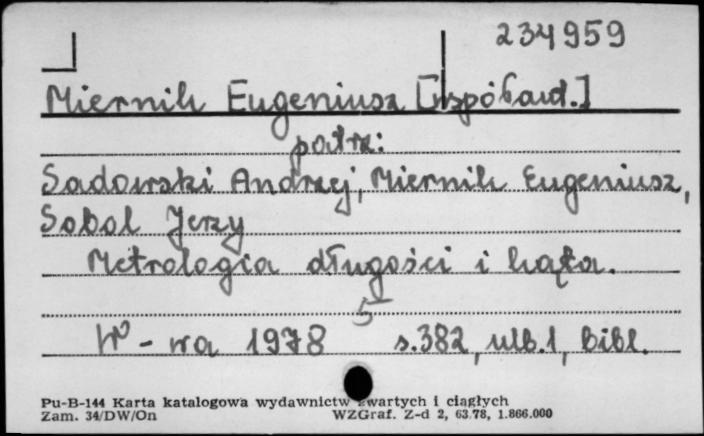 234959
Miernik Eugeniusz [współaut.]
patrz:
Sadowski Andrzej, Miernik Eugeniusz,
Sobol Jerzy
Metrologia długości i kąta.
5
W-wa 1978 s.382, ulb.1, bibl.
Pu-B-144 Karta katalogowa wydawnictw zwartych i ciągłych
Zam. 34/DW/On WZGraf. Z-d 2, 63.78, 1.866.000